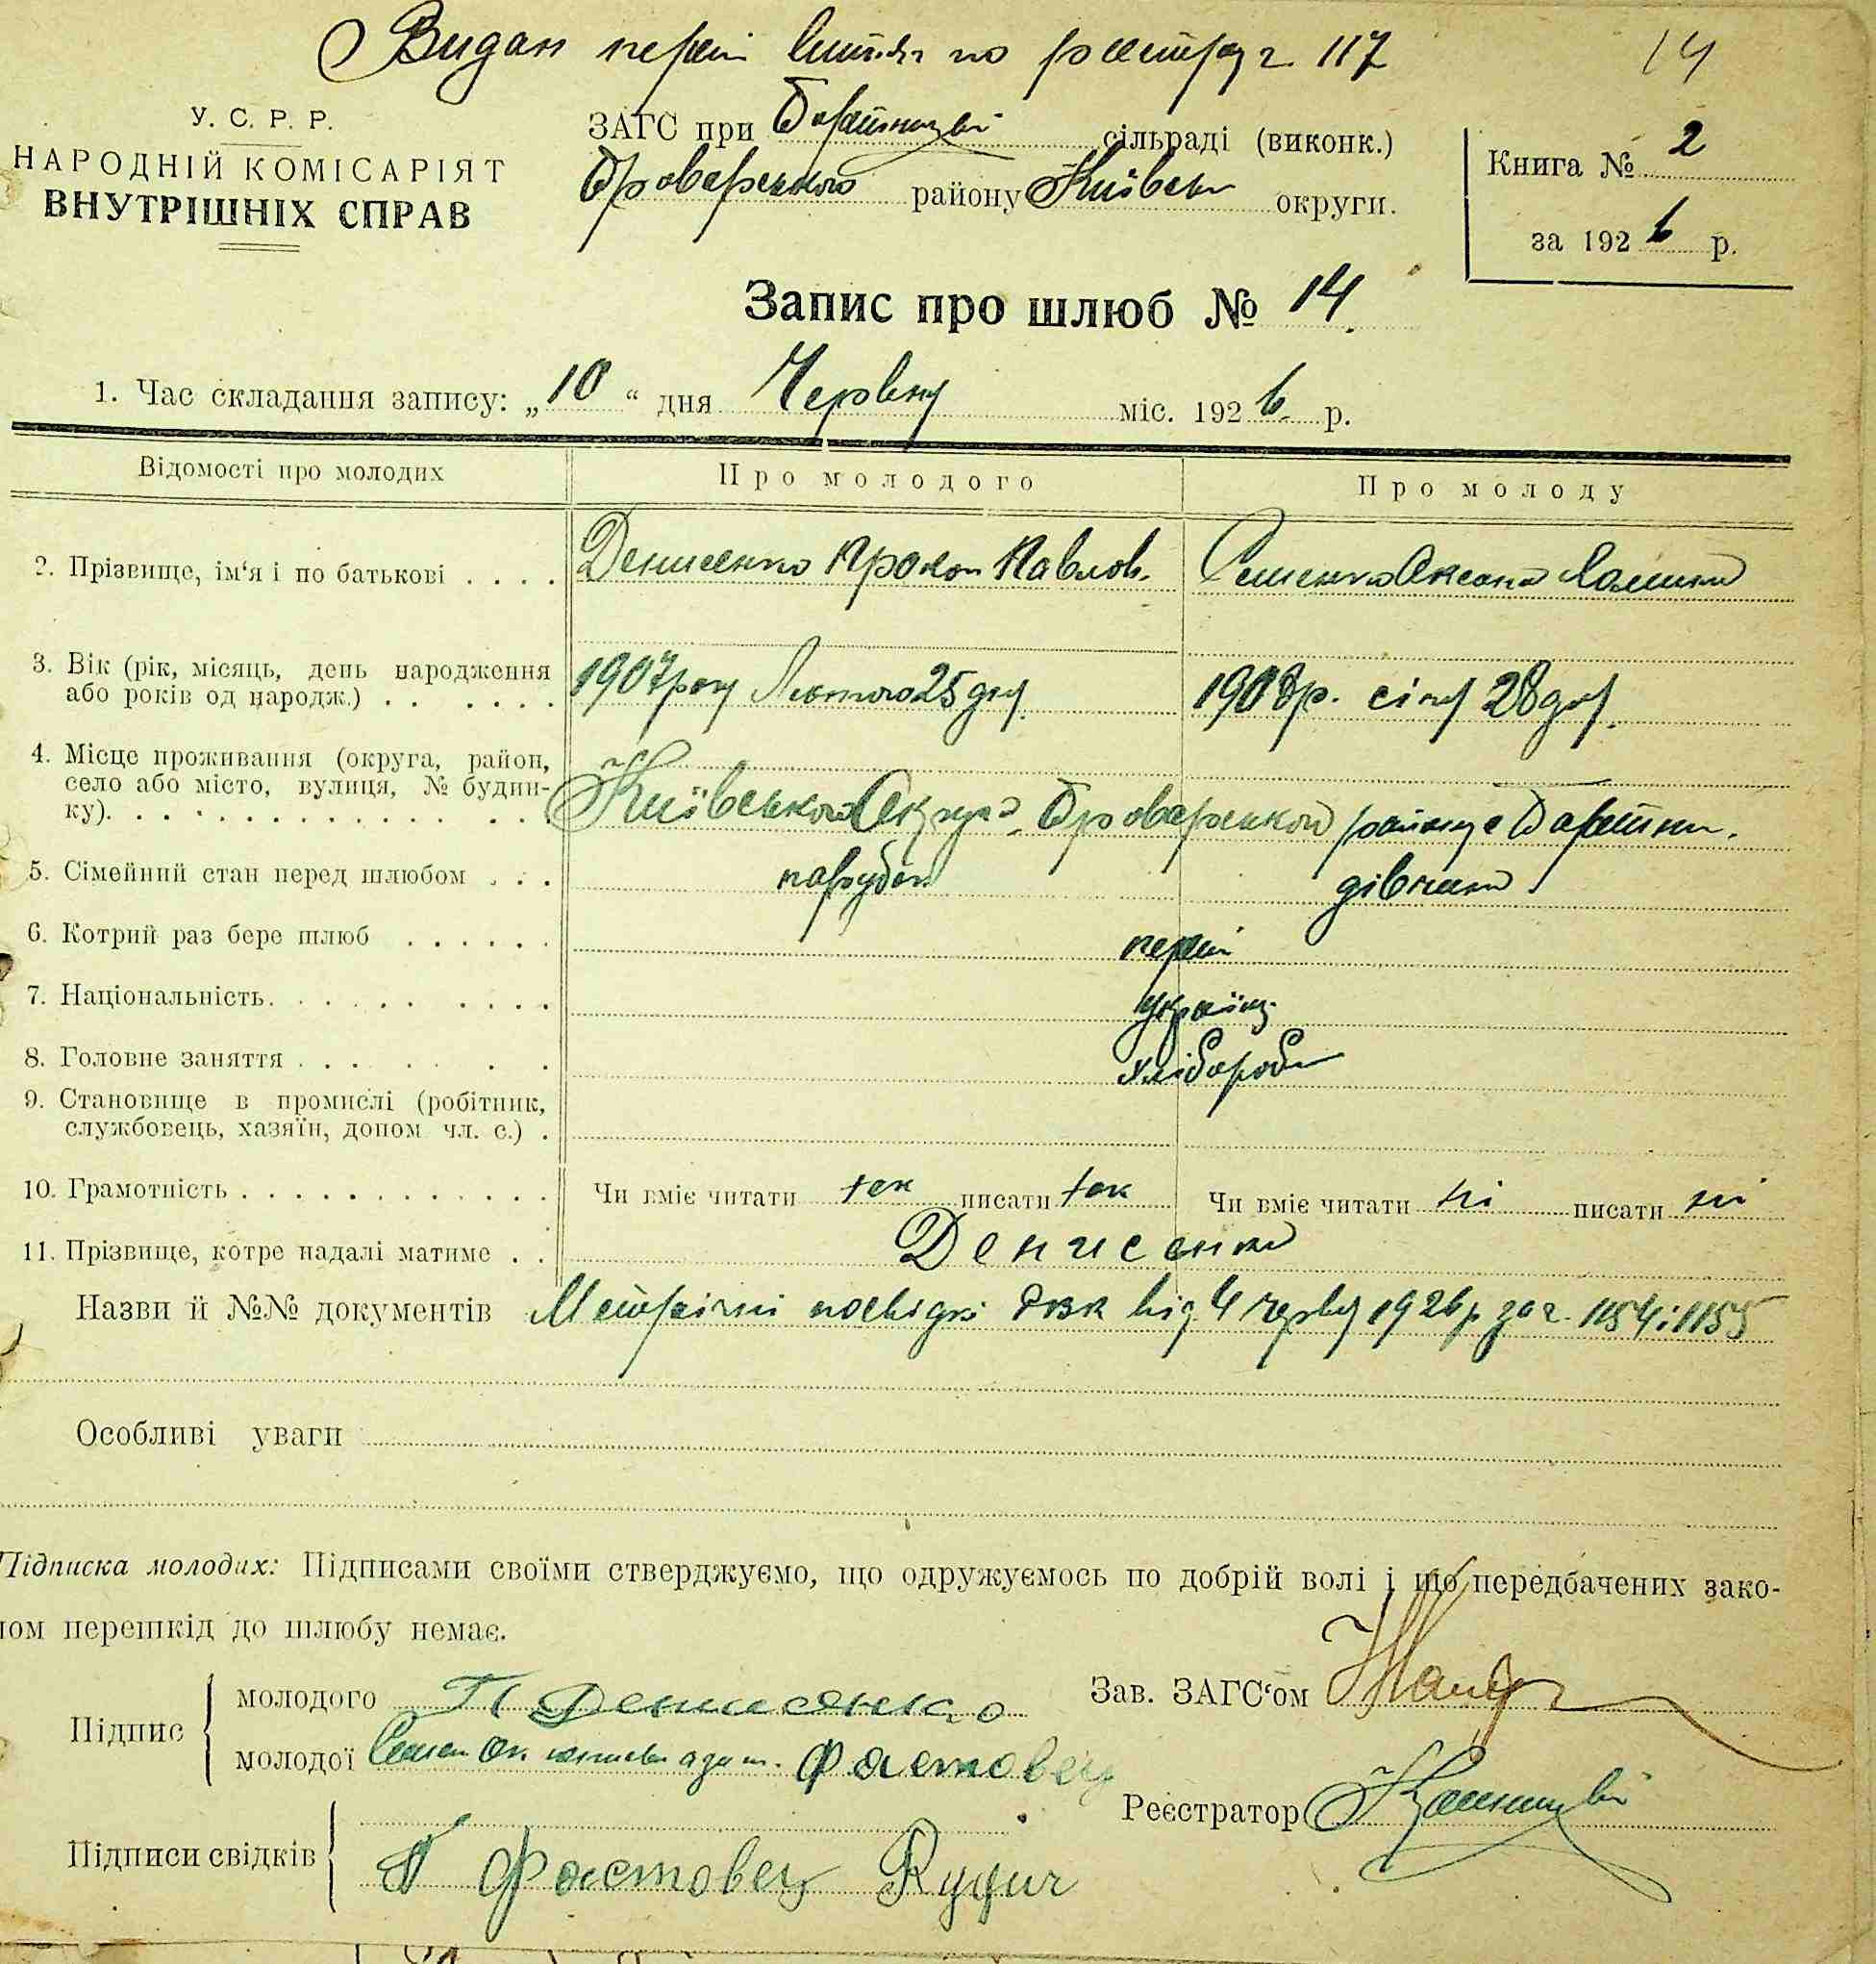 Видан перший витяг по реєстру ч. 117 14
У. С. Р. Р.
НАРОДНІЙ КОМІСАРІЯТ
ВНУТРІШНІХ СПРАВ
ЗАГС при сільраді (виконк.)
Броварського району Київськ округи.
Книга № 2
за 1926 р.
Запис про шлюб № 14.
1. Час складання запису: „10“ дня Червня міс. 1926 р.
Відомості про молодих Про молодого Про молоду
2. Прізвище, ім‘я і по батькові . . . . Денисенко Прокоп Павлов. Оксана
3. Вік (рік, місяць, день народження
або років од народж.) . . . . . . 1907 року Лютого 25 дня. 1908 р. січня 28 дня.
4. Місце проживання (округа, район,
село або місто, вулиця, № будин-
ку). . . . . . . . . . . . . . . . Київської Округи Броварського району с
5. Сімейний стан перед шлюбом . . . парубок дівчина
6. Котрий раз бере шлюб . . . . . . перший
7. Національність. . . . . . . . . . україн.
8. Головне заняття . . . . . . хлібороби
9. Становище в промислі (робітник,
службовець, хазяїн, допом чл. с.) .
10. Грамотність . . . . . . . . . . . . Чи вміє читати так писати так Чи вміє читати ні писати ні
11. Прізвище, котре надалі матиме . . Денисенко
Назви й №№ документів Метричні посвідки від 4 червня 1926 р за ч. 1154 і 1155
Особливі уваги
Підписка молодих: Підписами своїми стверджуємо, що одружуємось по добрій волі і що передбачених зако-
ном перешкід до шлюбу немає.
Підпис
молодого П Денисенко
молодої Фастовец
Зав. ЗАГС‘ом
Реєстратор
Підписи свідків
Фастовец